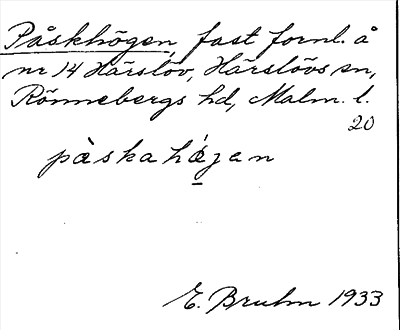 Påskhögen, fast fornl. å
nr 14 Härslöv, Härslövs sn,
Rönnebergs hd, Malm. l.
20
påskahǿjan
E. Bruhn 1933